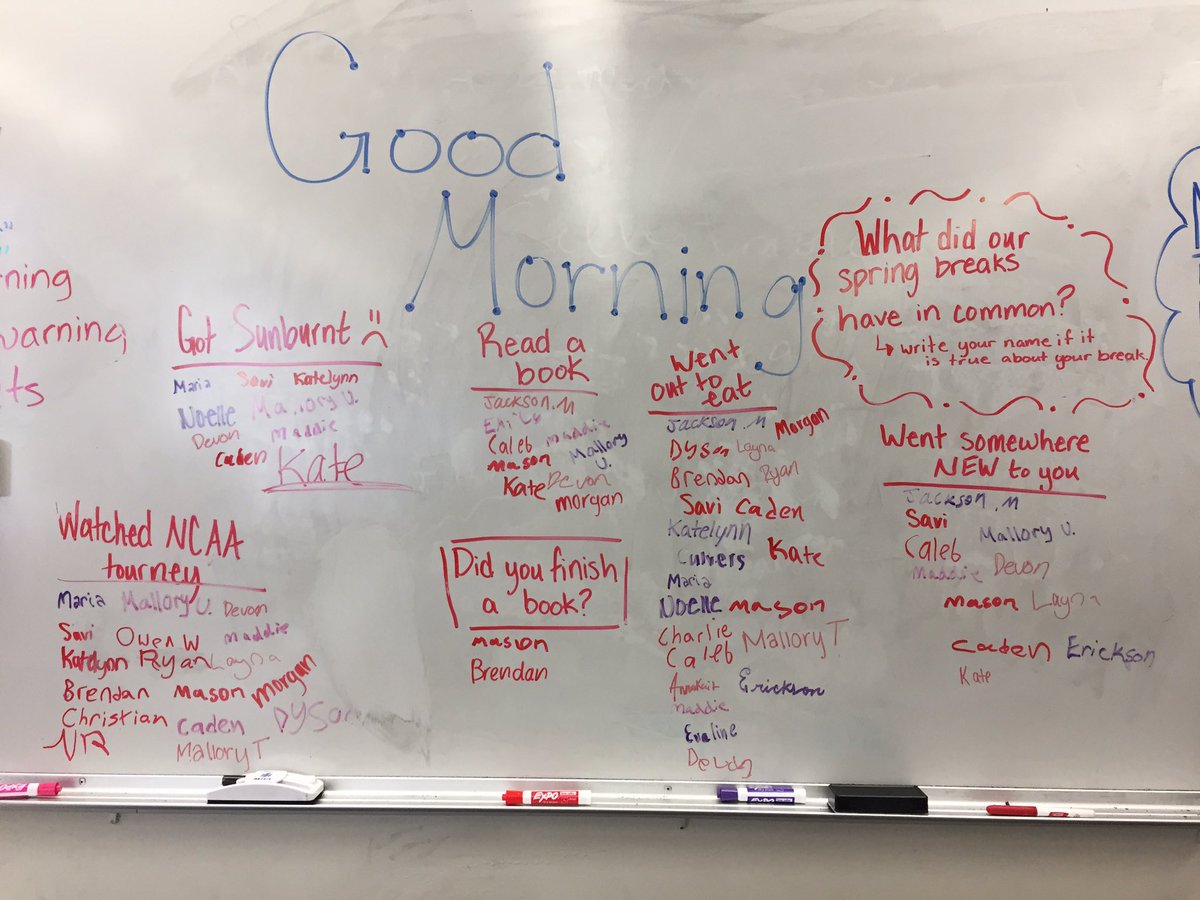 Good
Morning
ning
warning
ts
What did our
spring breaks
have in common?
↳ write your name if it
is true about your break.
Got Sunburnt :(
Maria Savi Katelynn
Noelle Mallory V.
Devon Maddie
Caden Kate
Read a
book
Jackson.M
Emily
Caleb maddie
Mason Mallory V.
Kate Devon
morgan
Went
out to
eat
Jackson.M Morgan
Dyson Layna
Brendan Ryan
Savi Caden
Katelynn
Culvers Kate
Maria
Noelle mason
Charlie MalloryT
Caleb
Annakait Erickson
maddie
Evaline
Devon
Went somewhere
NEW to you
Jackson.M
Savi Mallory V.
Caleb
maddie Devon
mason Layna
caden Erickson
Kate
Watched NCAA
tourney
Maria Mallory V. Devon
Savi Owen W maddie
Katelynn Ryan Layna
Brendan mason morgan
Christian caden Dyson
NR MalloryT
Did you finish
a book?
mason
Brendan
EXPO
EXPO